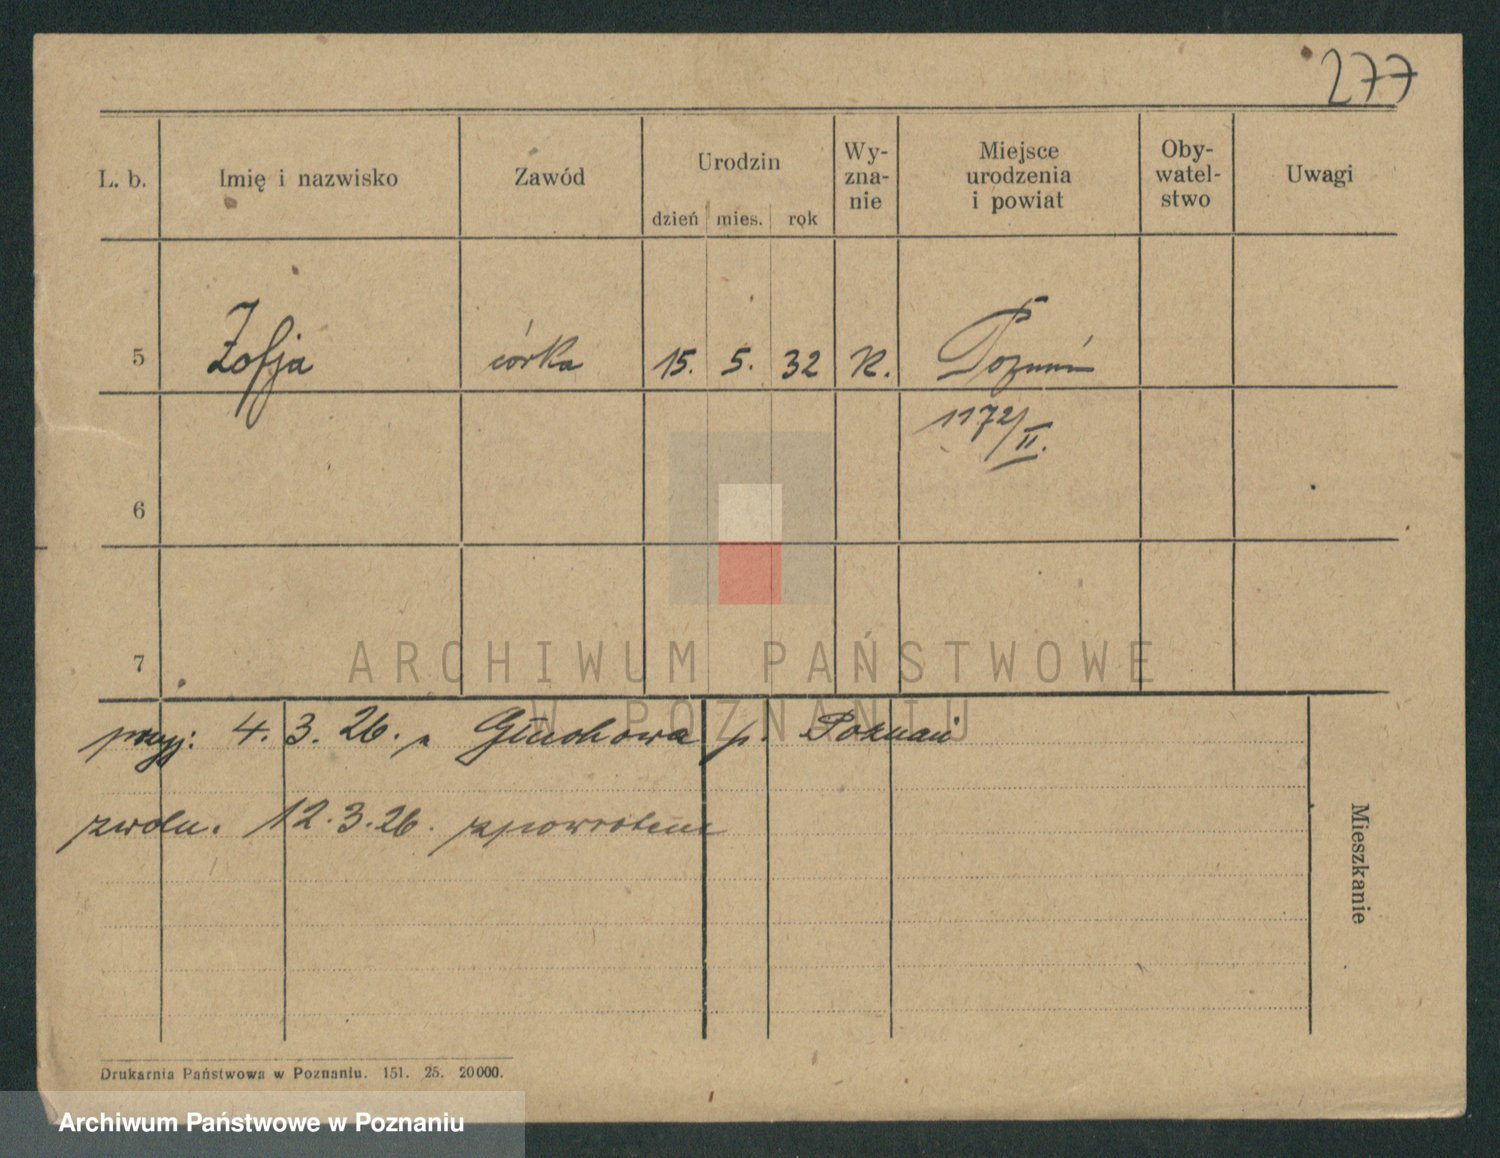 277
L. b. Imię i nazwisko Zawód Urodzin Wy-zna-nie Miejsce urodzenia i powiat Oby-watel-stwo Uwagi
dzień mies. rok
5 Zofja córka 15. 5. 32 K. Poznań
1172/II.
6
7
przyj: 4. 3. 26. z Głuchowa p. Poznań
zwoln. 12. 3. 26. zpowrotem
Mieszkanie
Drukarnia Państwowa w Poznaniu. 151. 25. 20000.
ARCHIWUM PAŃSTWOWE
W POZNANIU
Archiwum Państwowe w Poznaniu